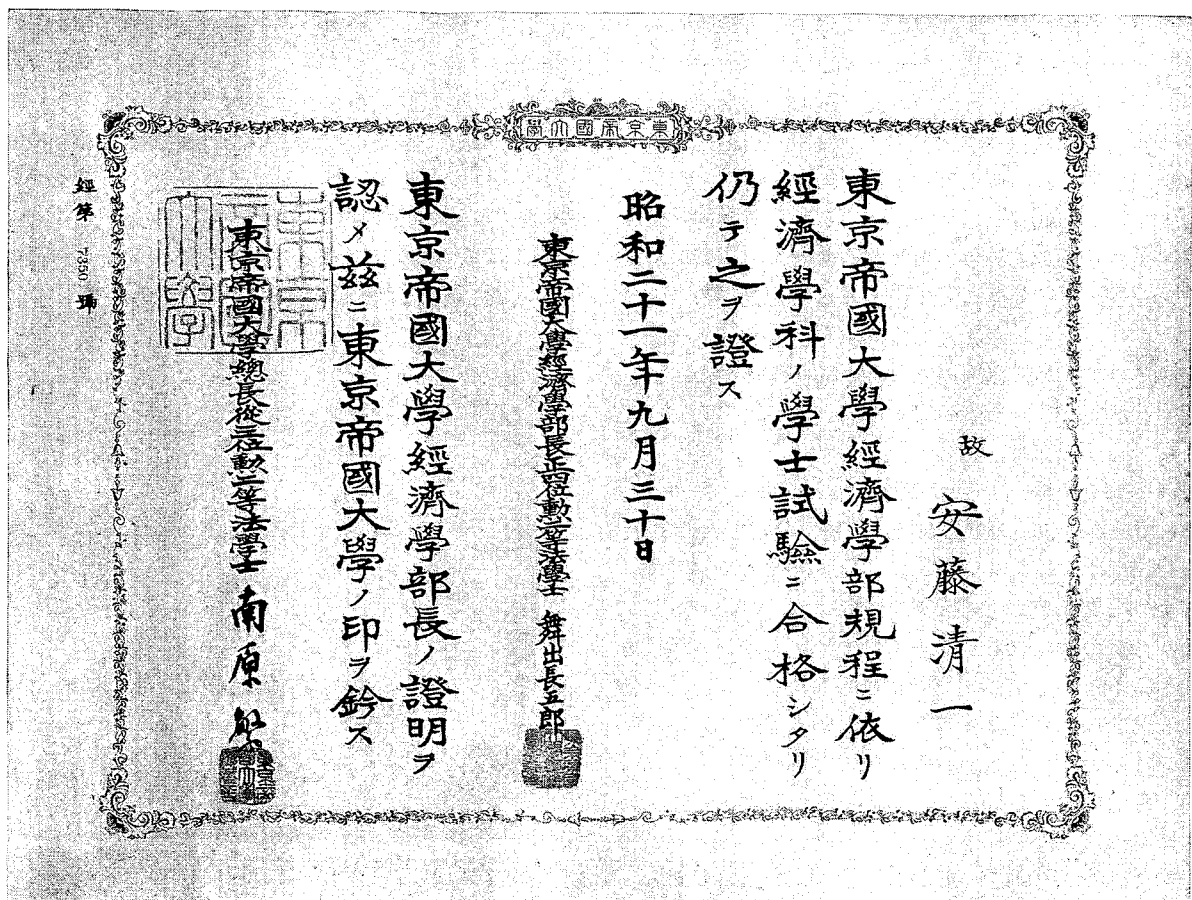 東京帝國大學
故 安藤清一
東京帝國大學經濟學部規程ニ依リ
經濟學科ノ學士試驗ニ合格シタリ
仍テ之ヲ證ス
昭和二十一年九月三十日
東京帝國大學經濟學部長正四位勲二等法學士 舞出長五郎
東京帝國大學經濟學部長ノ證明ヲ
認メ茲ニ東京帝國大學ノ印ヲ鈐ス
東京帝國大學總長從三位勲二等法學士 南原繁
東京帝國大學
經第 7350 號